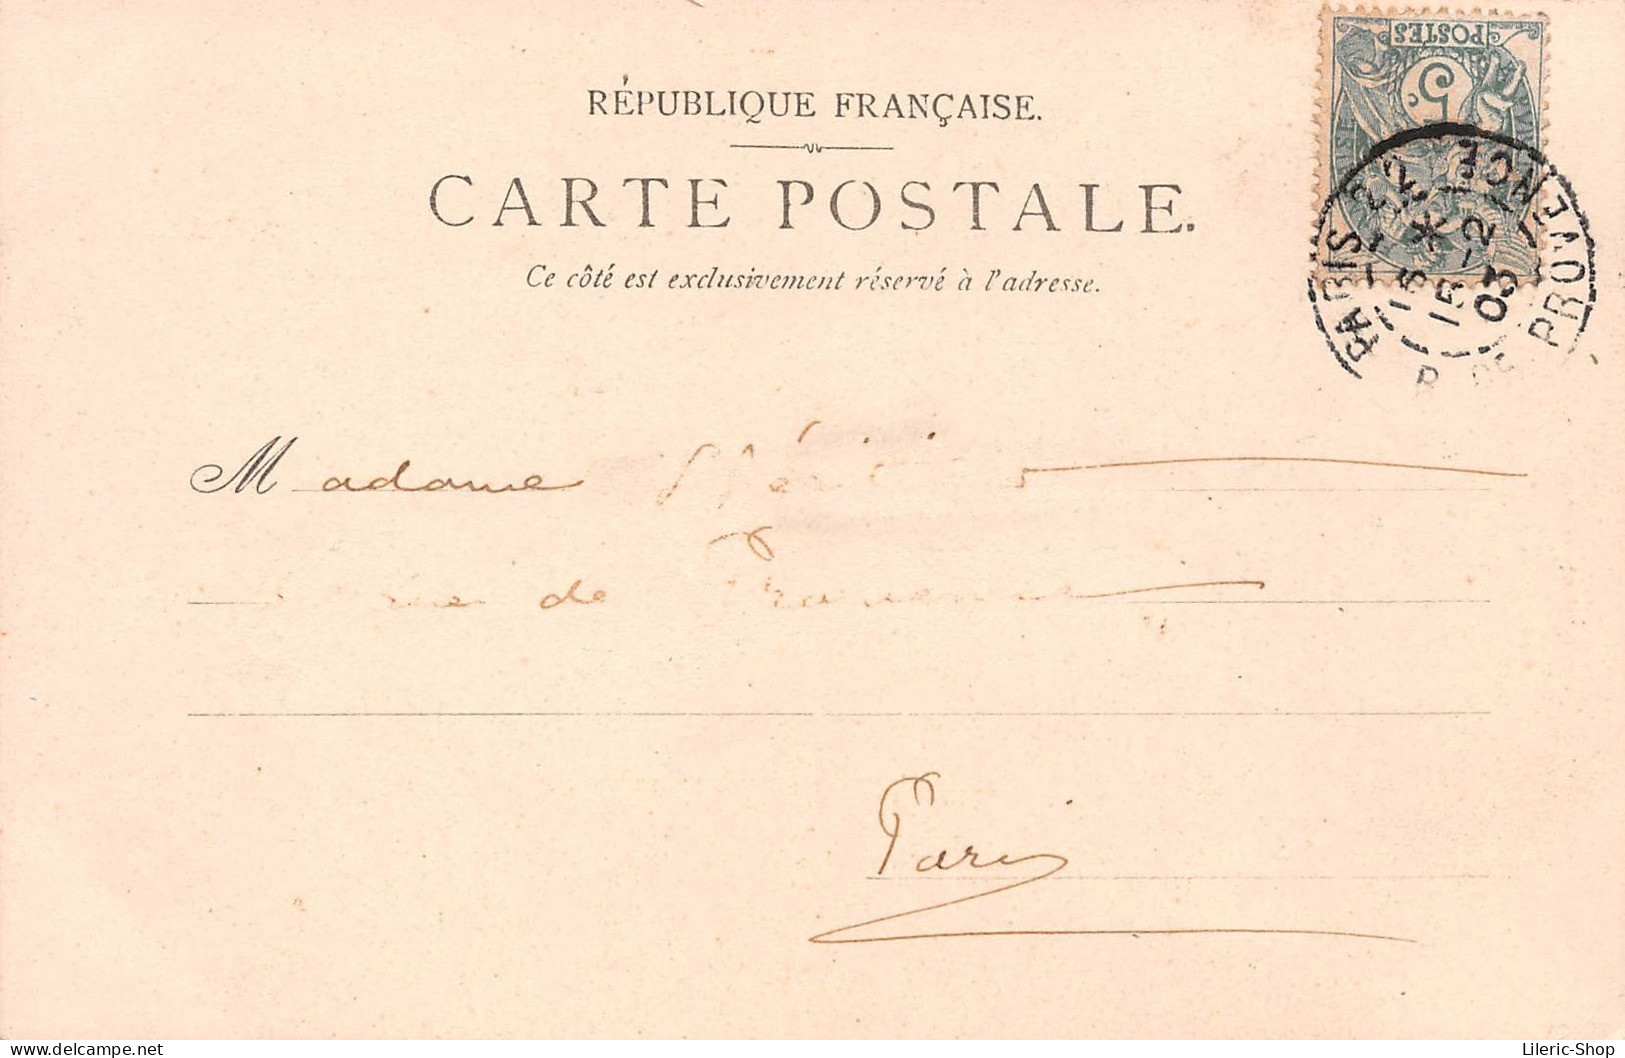 POSTES
5 c.
RÉPUBLIQUE FRANÇAISE.
CARTE POSTALE.
Ce côté est exclusivement réservé à l'adresse.
PARIS-22
R. DE PROVENCE
15-2
03
Madame
rue de
Paris
Lileric-Shop
www.delcampe.net